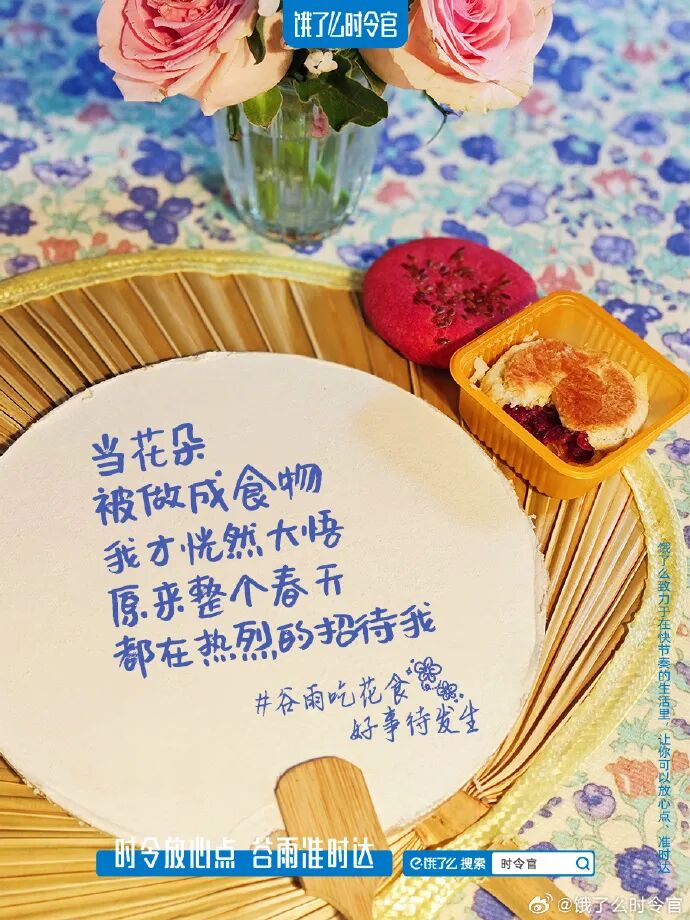 饿了么时令官
当花朵
被做成食物
我才恍然大悟
原来整个春天
都在热烈的招待我
#谷雨吃花食
好事待发生
饿了么致力于在快节奏的生活里，让你可以放心点、准时达
时令放心点 谷雨准时达
饿了么 搜索 时令官
@饿了么时令官